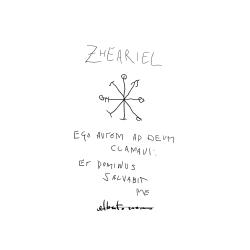 ZHEARIEL
EGO AUTEM AD DEUM
CLAMAVI:
ET DOMINUS
SALVABIT
ME